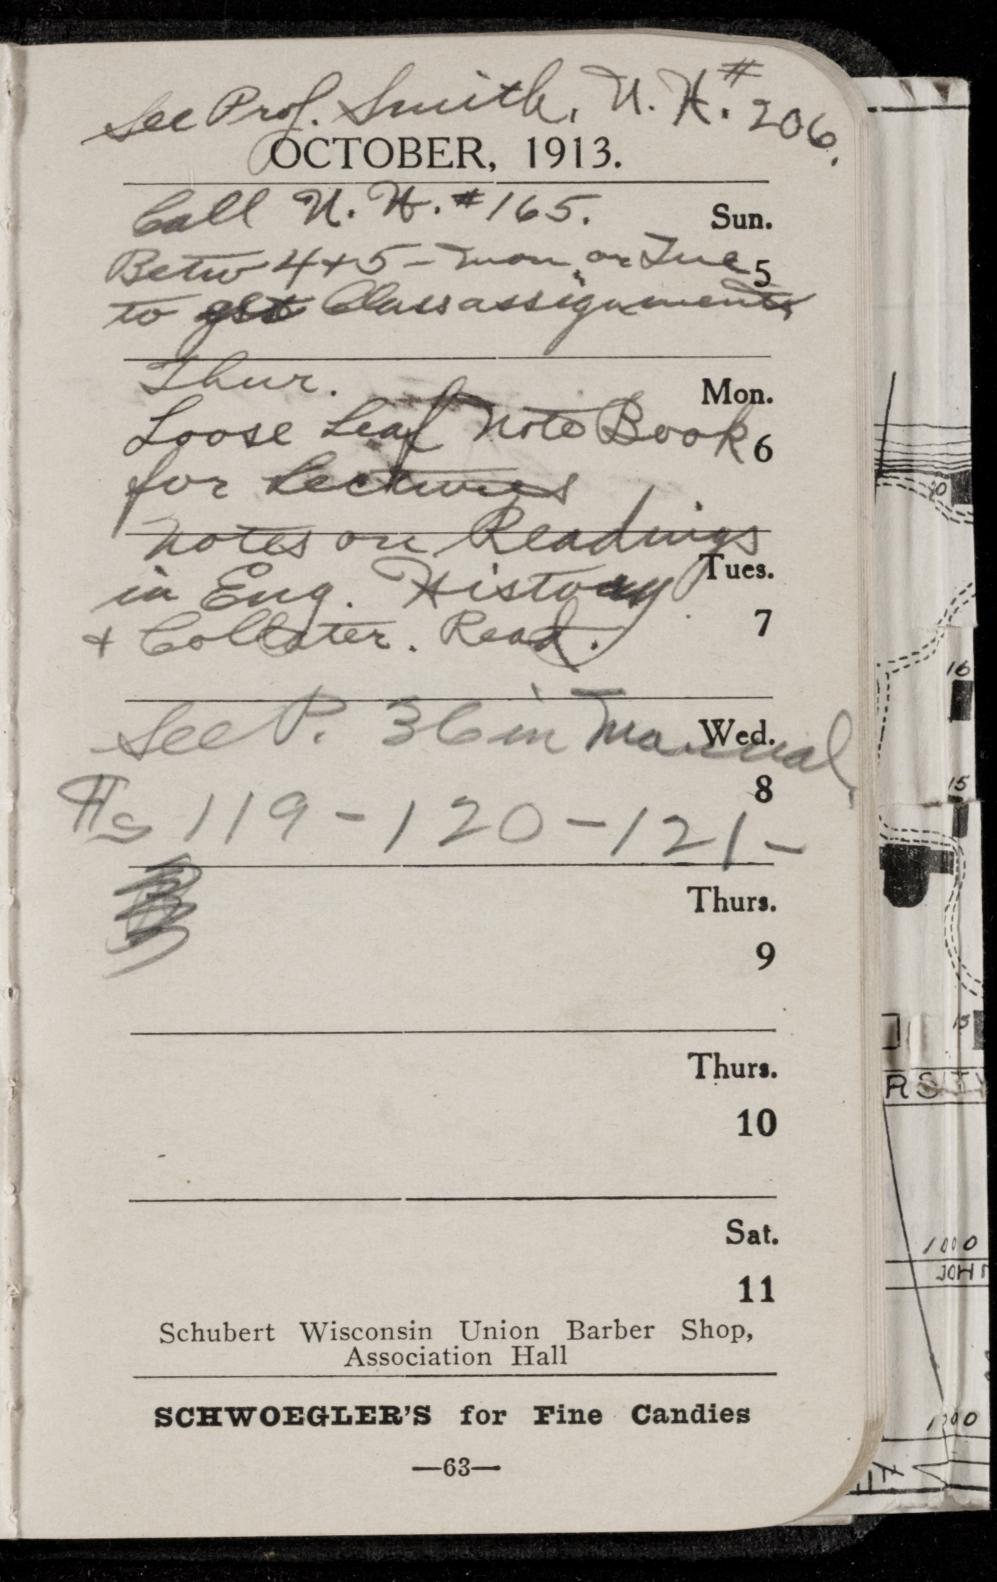 See Prof. Smith, U. H. # 206.
OCTOBER, 1913.
Call U. H. # 165.
Sun.
Betw 4 + 5 - Mon. or Tue
5
to get Class assignments
Thur.
Mon.
Loose Leaf Note Book
6
for Lectures
Notes on Readings
in Eng. History
Tues.
+ Collater. Read.
7
See P. 36 in Manual.
Wed.
8
119 - 120 - 121 -
Thurs.
9
Thurs.
10
Sat.
11
Schubert Wisconsin Union Barber Shop,
Association Hall
SCHWOEGLER'S for Fine Candies
—63—
20
16
15
15
RSITY
1000
JOHN
1000